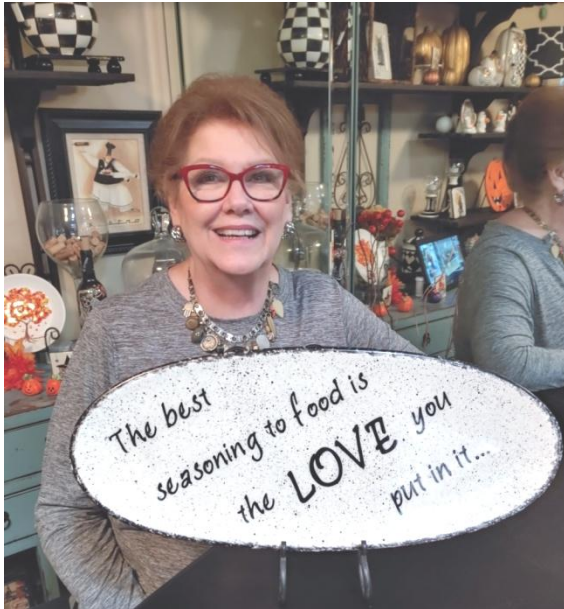 The best
seasoning to food is
the LOVE you
put in it...